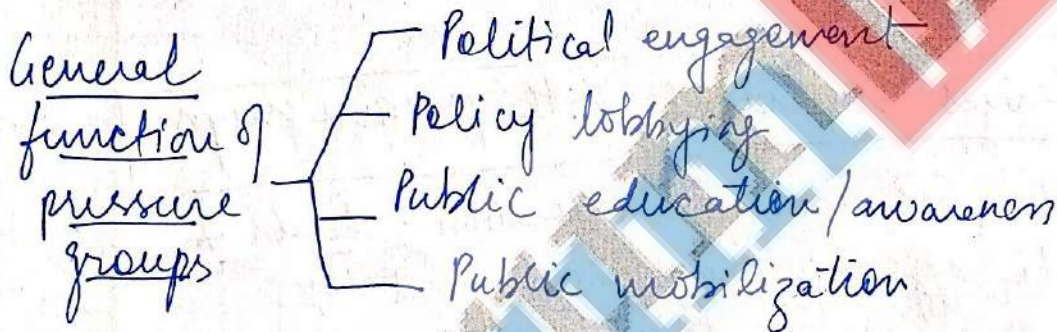 General
function of
pressure
groups
Political engagement
Policy lobbying
Public education/awareness
Public mobilization